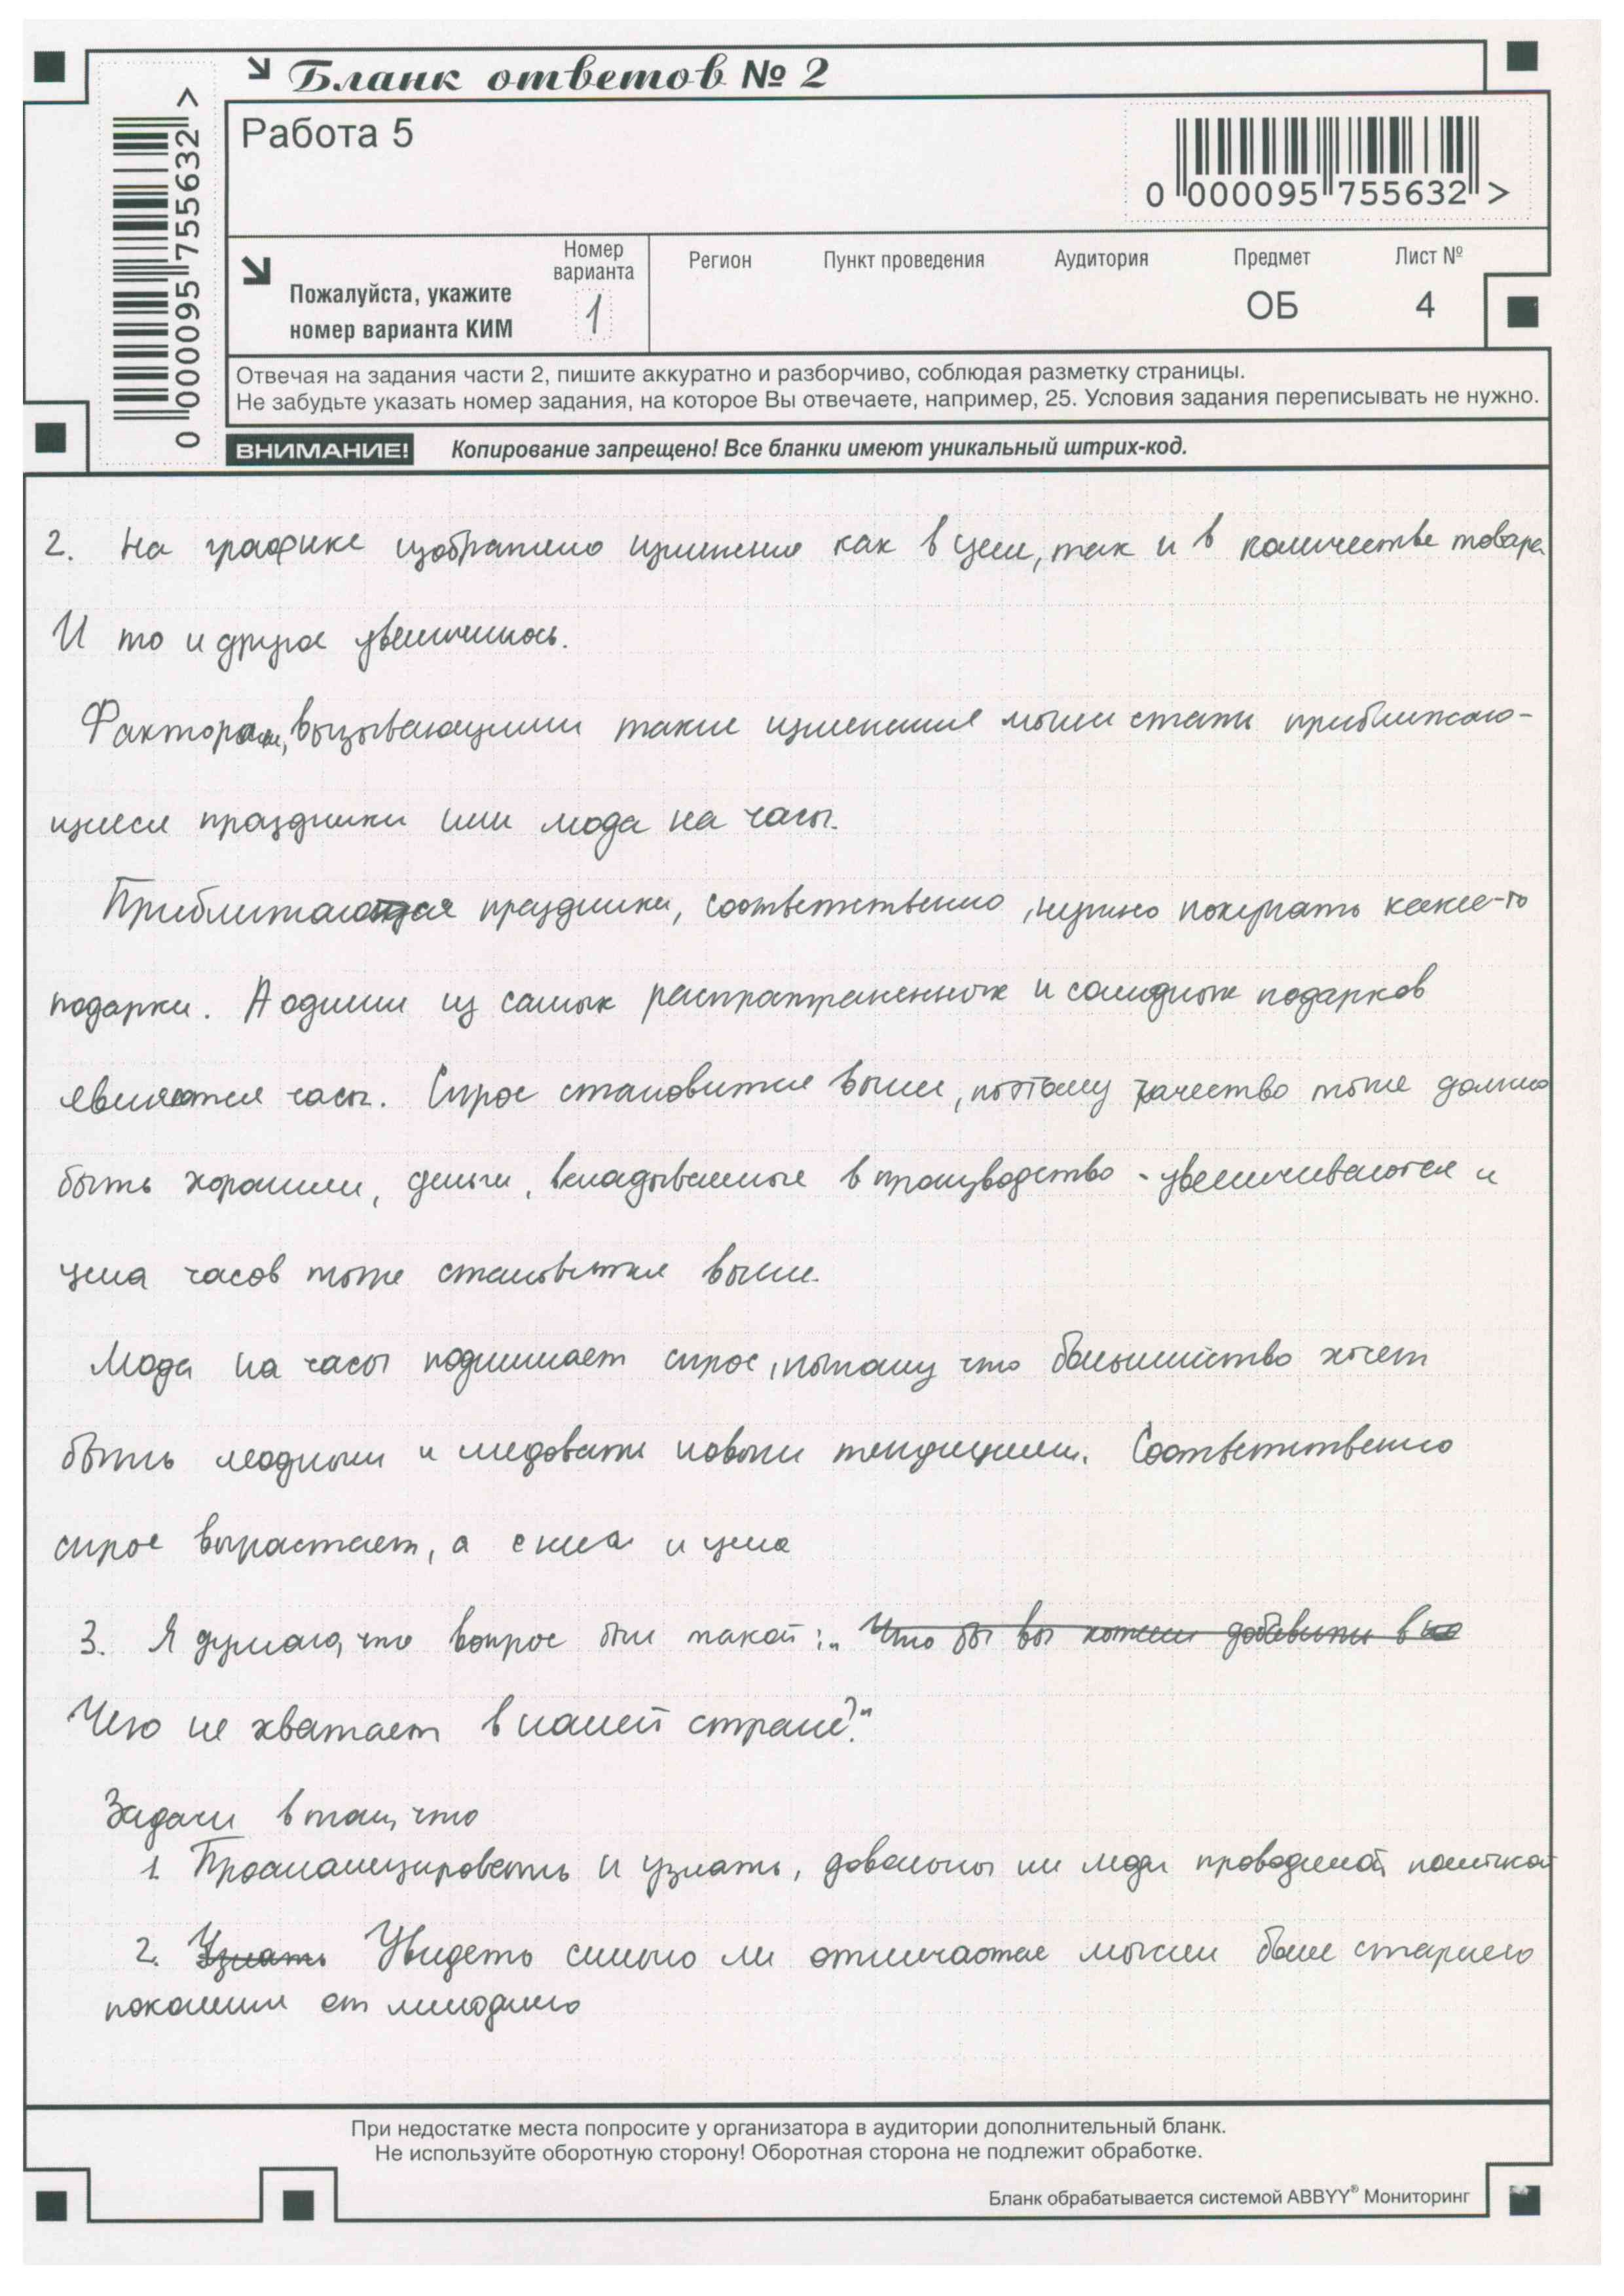 Бланк ответов № 2
Работа 5
0 000095 755632 >
0 000095 755632 >
Пожалуйста, укажите номер варианта КИМ
Номер варианта
1
Регион
Пункт проведения
Аудитория
Предмет
ОБ
Лист №
4
Отвечая на задания части 2, пишите аккуратно и разборчиво, соблюдая разметку страницы.
Не забудьте указать номер задания, на которое Вы отвечаете, например, 25. Условия задания переписывать не нужно.
ВНИМАНИЕ! Копирование запрещено! Все бланки имеют уникальный штрих-код.
2. На графике изображено изменение как в цене, так и в количестве товара
И то и другое увеличилось.
Факторами, вызывающими такие изменения могли стать приближаю-
щиеся праздники или мода на часы.
Приближаются праздники, соответственно, нужно покупать какие-то
подарки. А одним из самых распрастраненных и солидных подарков
являются часы. Спрос становится выше, поэтому качество тоже должно
быть хорошим, деньги, вкладываемые в производство - увеличиваются и
цена часов тоже становится выше.
Мода на часы поднимает спрос, потому что большинство хочет
быть модными и следовать новым тенденциям. Соответственно
спрос вырастает, а с ним и цена
3. Я думаю, что вопрос был такой: „ Что бы вы хотели добавить в
Чего не хватает в нашей стране?"
Задачи в том, что
1. Проанализировать и узнать, довольны ли люди проводимой политикой
2. Узнать Увидеть сильно ли отличаются мысли более старшего
поколения от младшего
При недостатке места попросите у организатора в аудитории дополнительный бланк.
Не используйте оборотную сторону! Оборотная сторона не подлежит обработке.
Бланк обрабатывается системой ABBYY® Мониторинг